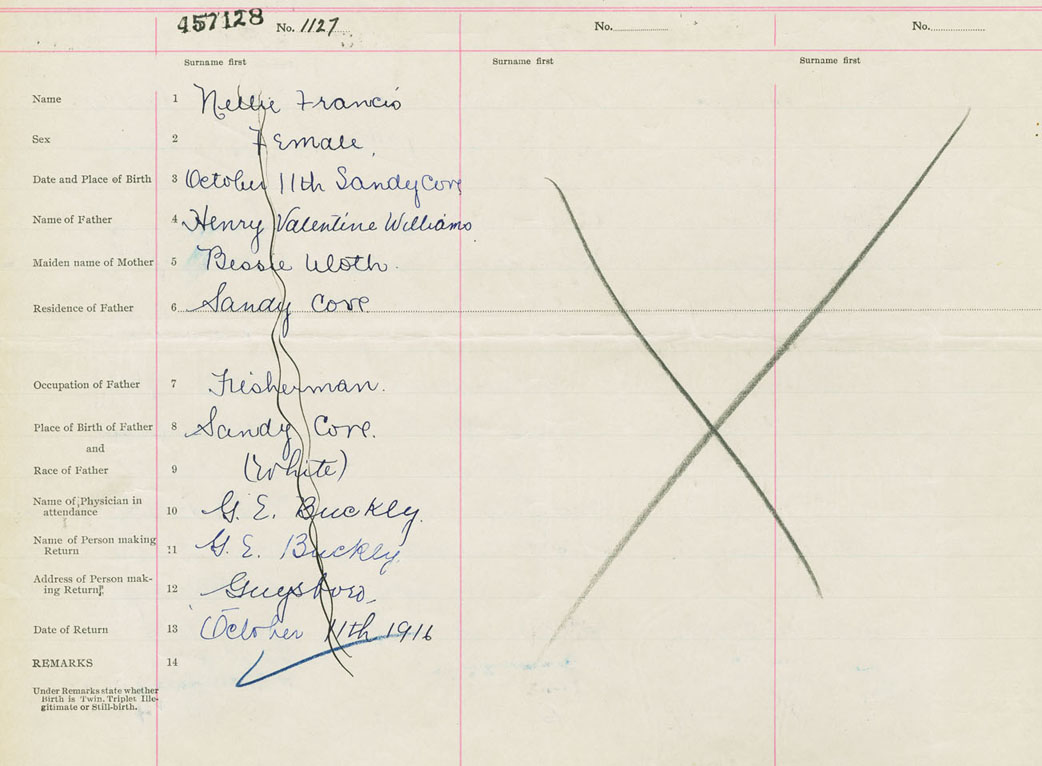 457128 No. 1127 No. No.
Surname first Surname first Surname first
Name 1 Nellie Francis
Sex 2 Female.
Date and Place of Birth 3 October 11th Sandy Cove
Name of Father 4 Henry Valentine Williams
Maiden name of Mother 5 Bessie
Residence of Father 6 Sandy Cove.
Occupation of Father 7 Fisherman.
Place of Birth of Father 8 Sandy Cove.
and
Race of Father 9 (White)
Name of Physician in
attendance 10 G. E. Buckly.
Name of Person making
Return 11 G. E. Buckly.
Address of Person mak-
ing Return 12 Guysboro.
Date of Return 13 October 11th 1916
REMARKS 14
Under Remarks state whether
Birth is Twin, Triplet Ille-
gitimate or Still-birth.